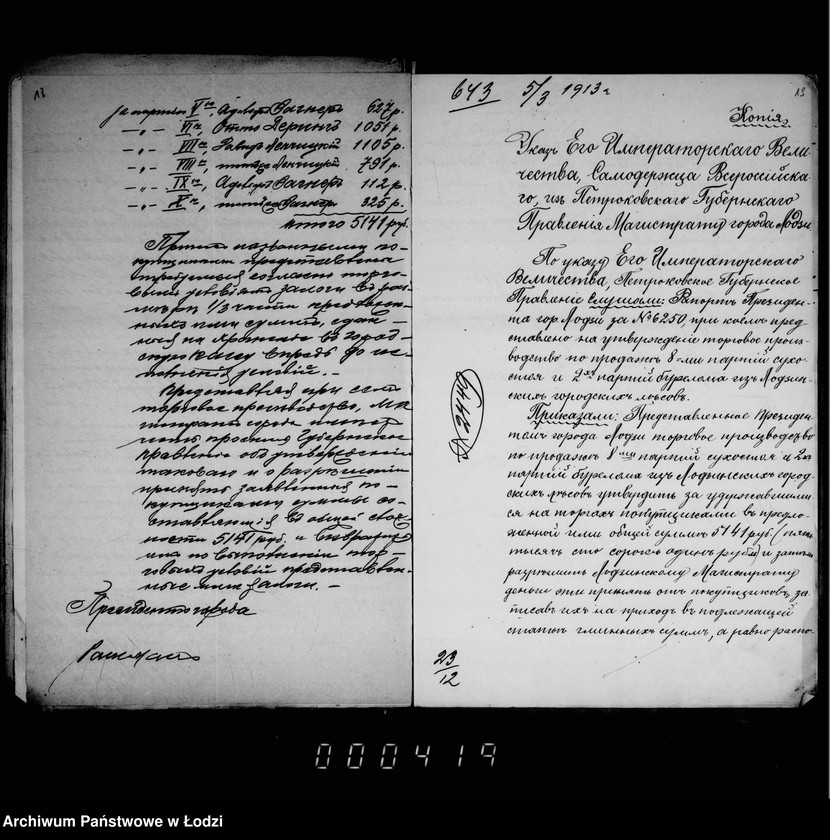 за партію V ую, Адольфъ Вагнеръ 627 р.
— „ — VI ую, Отто Герингъ 1051 р.
— „ — VII ую, Давидъ Ленчицкій 1105 р.
— „ — VIII ую, Ленчицкій 791 р.
— „ — IX ую, Адольфъ Вагнеръ 112 р.
— „ — X ую, Вагнеръ 325 р.
итого 5141 руб.
При названными по-
купщиками представлены
требуемые согласно торго-
вымъ условіямъ залоги въ раз-
мѣрѣ 1/3 части предложен-
ной ими суммы, сдан-
ные на храненіе въ город-
скую кассу впредь до ис-
полненія условій. —
Представляя при семъ
торговое производство, Ма-
гистратъ
проситъ Губернское
Правленіе объ утвержденіи
таковаго и о разрѣшеніи
принять заявленныя по-
купщиками суммы со-
ставляющія въ общей слож-
ности 5141 руб. и
по выполненіи тор-
говыхъ условій представлен-
ные ими залоги. —
Президентъ города
643 5/3 1913 г
13
Копія.
Указъ Его Императорскаго Вели-
чества, Самодержца Всероссійска-
го, изъ Петроковскаго Губернскаго
Правленія Магистрату города Лодзи.
По указу Его Императорскаго
Величества, Петроковское Губернское
Правленіе слушали: Рапортъ Президен-
та гор. Лодзи за № 6250, при коемъ пред-
ставлено на утвержденіе торговое произ-
водство по продажѣ 8-ми партій сухо-
стоя и 2хъ партій бурелома изъ Лодзин-
скихъ городскихъ лѣсовъ.
Приказали: Представленное Президен-
томъ города Лодзи торговое производство
по продажѣ 8 ми партій сухостоя и 2хъ
партій бурелома изъ Лодзинскихъ город-
скихъ лѣсовъ утвердить за удержавшими-
ся на торгахъ покупщиками въ предло-
женной ими общей суммѣ 5141 руб. (пять
тысячъ сто сорокъ одинъ рубль) и затѣмъ
разрѣшить Лодзинскому Магистрату
деньги эти принять отъ покупщиковъ, за-
писавъ ихъ на приходъ въ подлежащей
статьѣ суммъ, а равно распо-
2449
23/12
000419
Archiwum Państwowe w Łodzi